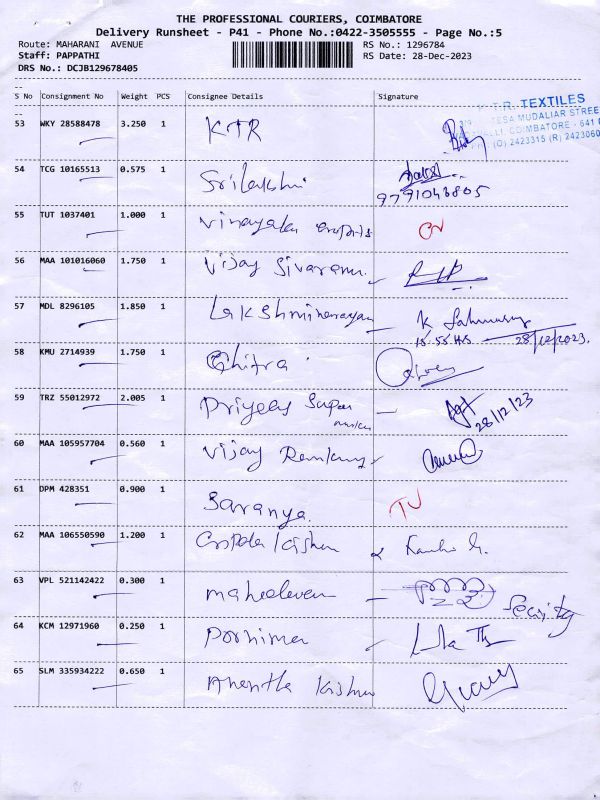 THE PROFESSIONAL COURIERS, COIMBATORE
Delivery Runsheet - P41 - Phone No.:0422-3505555 - Page No.:5
Route: MAHARANI AVENUE RS No.: 1296784
Staff: PAPPATHI RS Date: 28-Dec-2023
DRS No.: DCJB129678405
S No Consignment No Weight PCS Consignee Details Signature
T.R. TEXTILES
TESA MUDALIAR STREE
COIMBATORE - 641 0
(O) 2423315 (R) 2423060
53 WKY 28588478 3.250 1 KTR
54 TCG 10165513 0.575 1 Srilakshmi
9791043805
55 TUT 1037401 1.000 1 Vinayaka
56 MAA 101016060 1.750 1 Vijay Sivaraman
57 MDL 8296105 1.850 1 Lakshminarayan K
15:55 Hrs 28/12/2023.
58 KMU 2714939 1.750 1 Chitra
59 TRZ 55012972 2.005 1 Priyees Super
28/12/23
60 MAA 105957704 0.560 1 Vijay
61 DPM 428351 0.900 1 Saranya
62 MAA 106550590 1.200 1
63 VPL 521142422 0.300 1 mahadevan Security
64 KCM 12971960 0.250 1 Pornima
65 SLM 335934222 0.650 1 Anantha Krishna